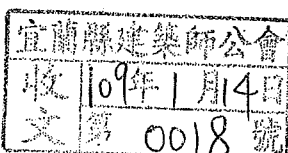 宜蘭縣建築師公會
收文
109年1月14日
第0018號